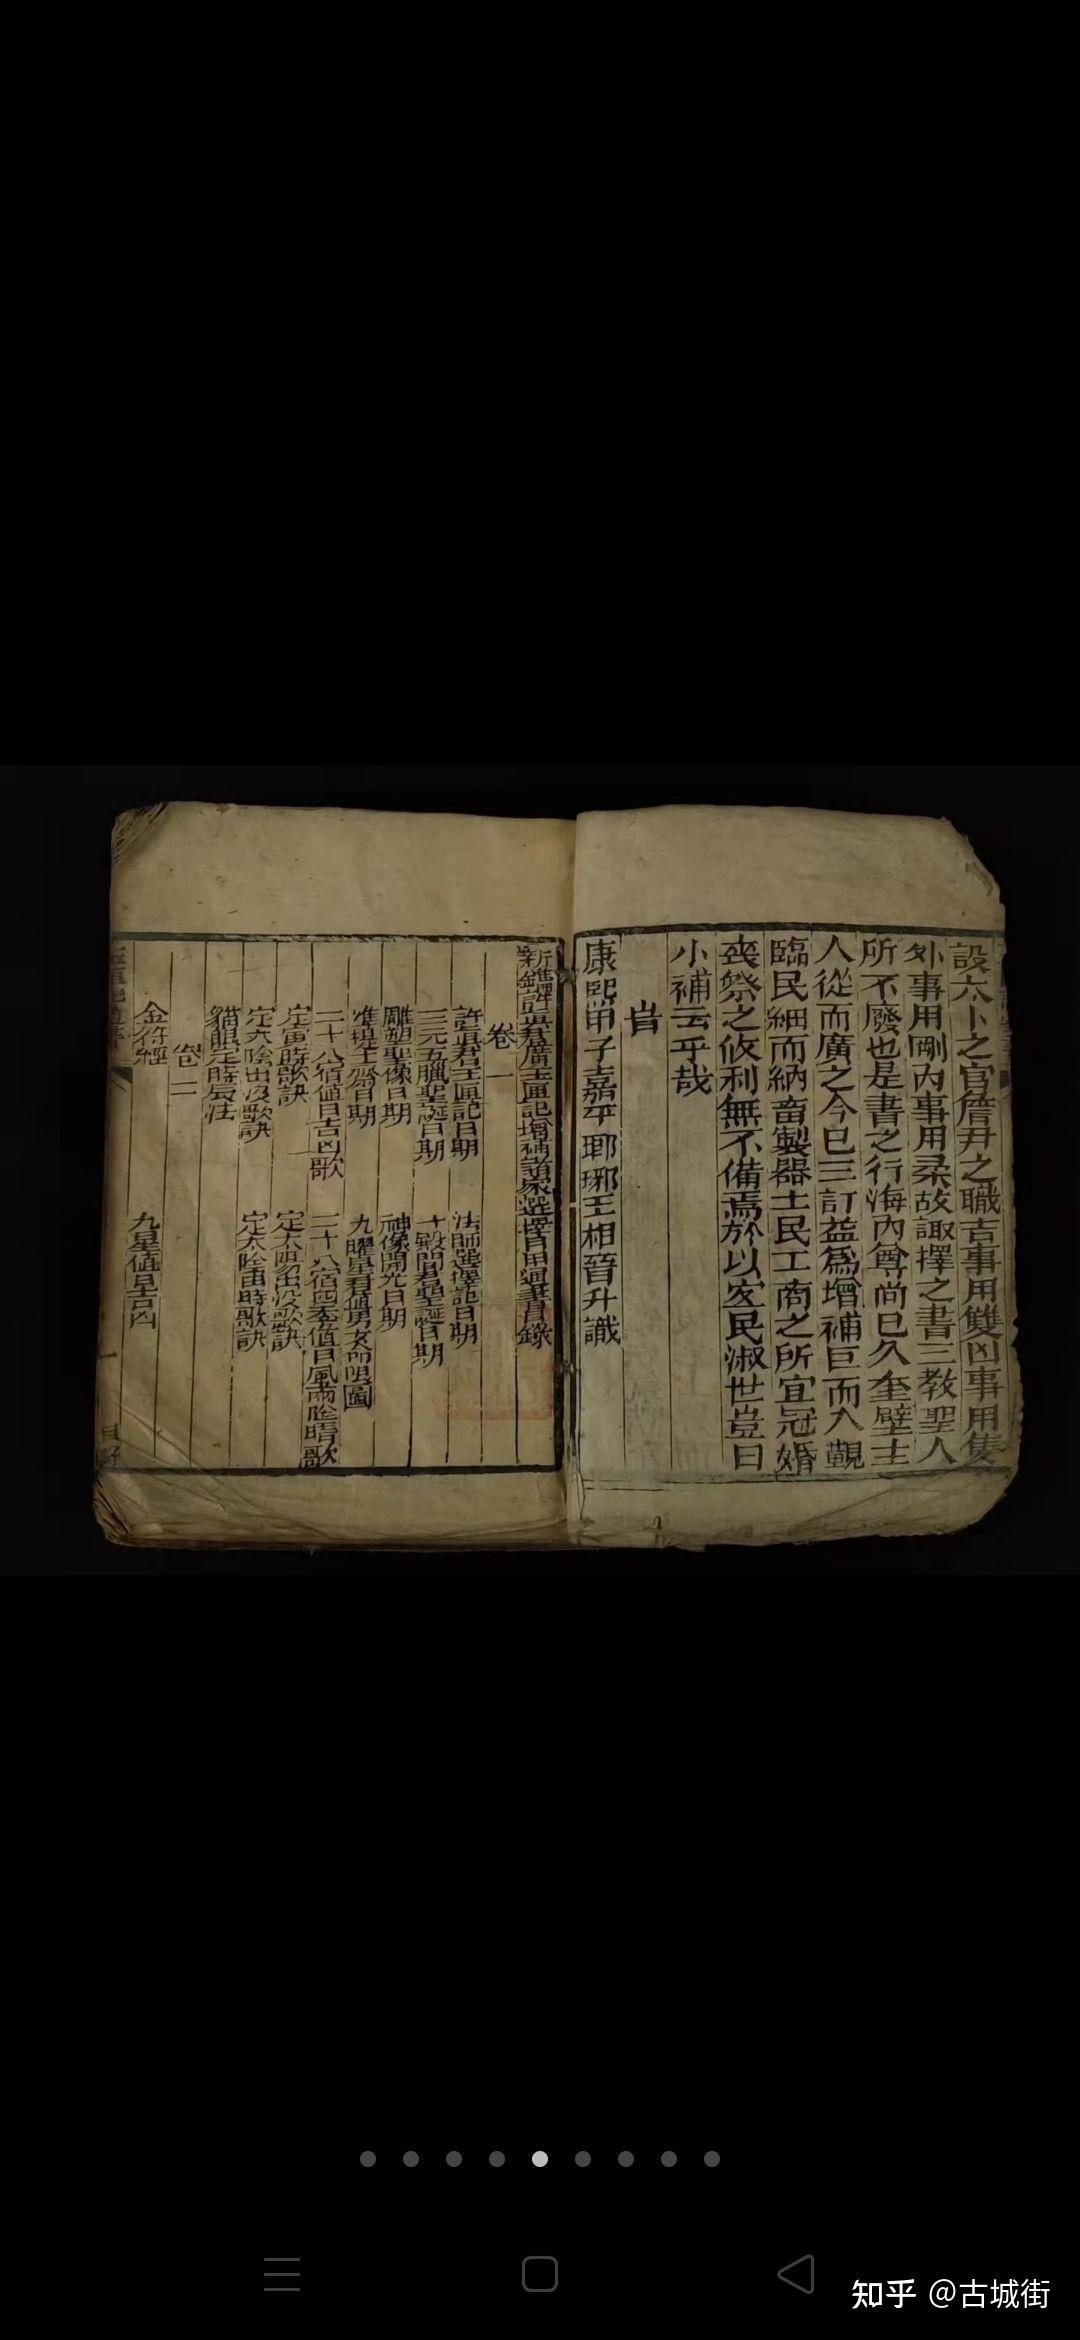 設太卜之官詹尹之職吉事用雙凶事用隻
外事用剛內事用柔故諏擇之書三教聖人
所不廢也是書之行海內尊尚已久奎壁主
人從而廣之今已三訂益為增補巨而入覲
臨民細而納畜製器士民工商之所宜冠婚
喪祭之攸利無不備焉於以宏民淑世豈曰
小補云乎哉
旹
康熙甲子嘉平瑯琊王相晉升識
新鐫許真君廣玉匣記增補諸家選擇日用通書目錄
卷一
許真君玉匣記日期 法師選擇記日期
三元五臘聖誕日期 十殿閻君聖誕日期
雕塑聖像日期 神像開光日期
准提王齋日期 九曜星君值男女命限圖
二十八宿值日吉凶歌 二十八宿四季值日風雨陰晴歌
定寅時歌訣 定太陽出沒歌訣
定太陰出沒歌訣 定太陰宙時歌訣
貓眼定時辰法
卷二
金符經 九星值日吉凶
知乎 @古城街